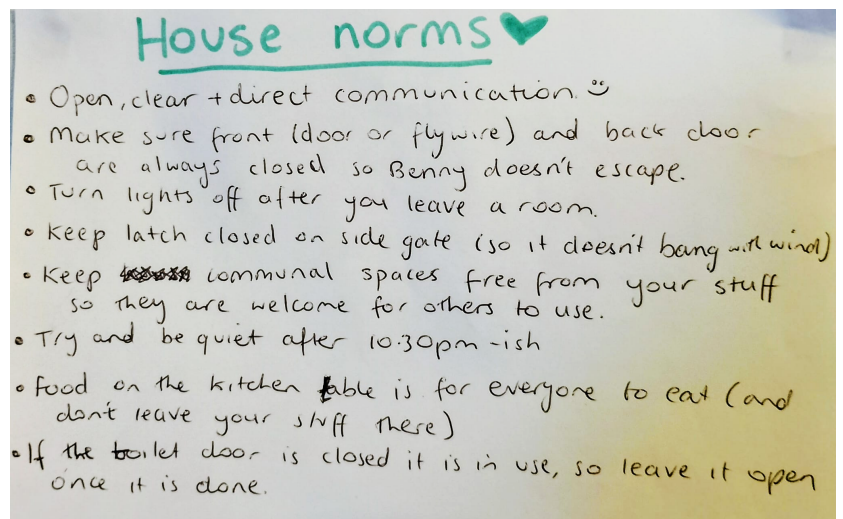 House norms
• Open, clear + direct communication. :)
• Make sure front (door or flywire) and back door
are always closed so Benny doesn't escape.
• Turn lights off after you leave a room.
• Keep latch closed on side gate (so it doesn't bang with wind)
• Keep communal spaces free from your stuff
so they are welcome for others to use.
• Try and be quiet after 10.30pm -ish
• Food on the kitchen table is for everyone to eat (and
don't leave your stuff there)
• If the toilet door is closed it is in use, so leave it open
once it is done.